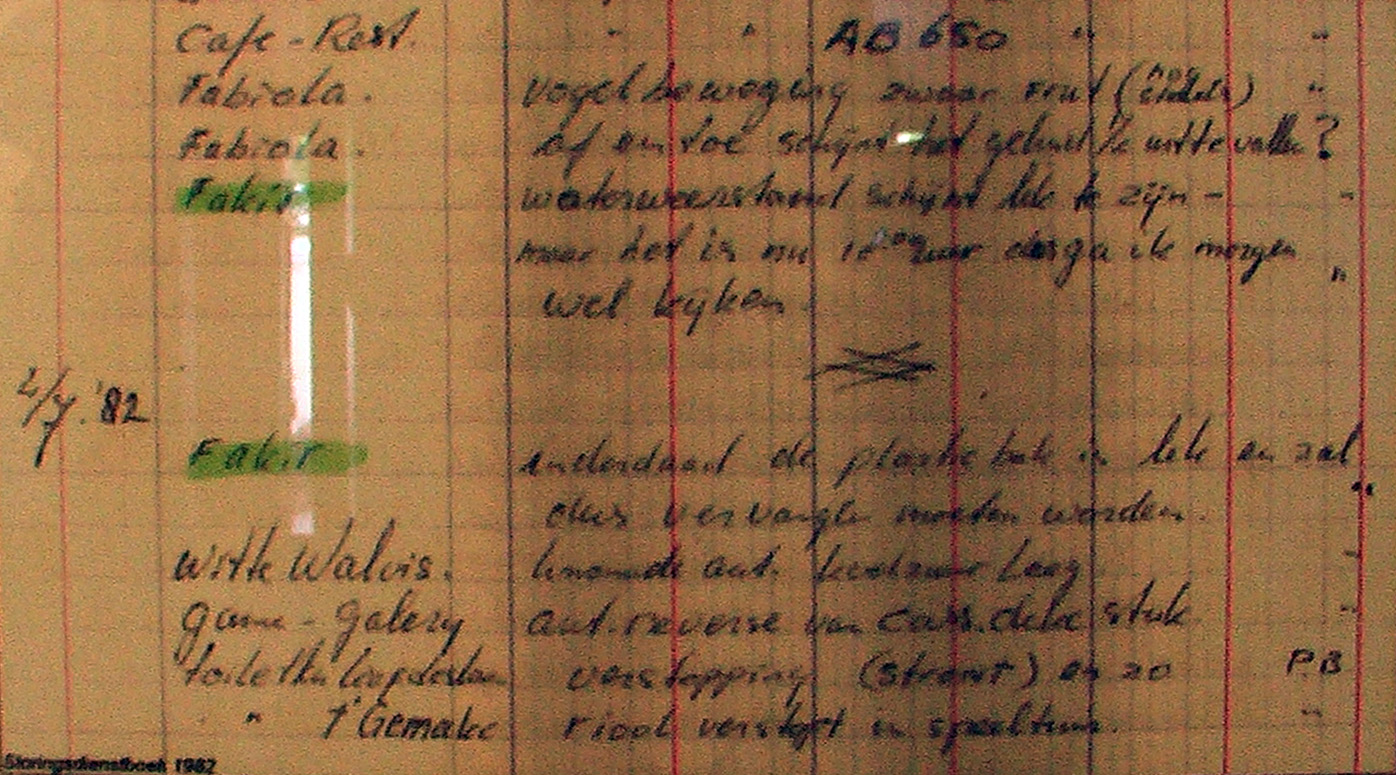 Cafe-Rest. " " AB 650 " "
Fabiola. vogelbeweging zwaar fout ( ) "
Fabiola. af en toe schijnt het geluid te uitte vallen?
Fakir waterweerstand schijnt lek te zijn - "
maar het is nu uur dus ga ik morgen "
wel kijken.
2/7.'82
Fakir inderdaad de plastic bak is lek en zal "
dus vervangen moeten worden.
Witte Walvis. aut. leeg "
game-galery aut. reverse van cass. deck stuk "
toiletten verstopping (stront) en zo P.B
" 't Gemakc riool verstopt in speeltuin. "
Storingsdienstboek 1982